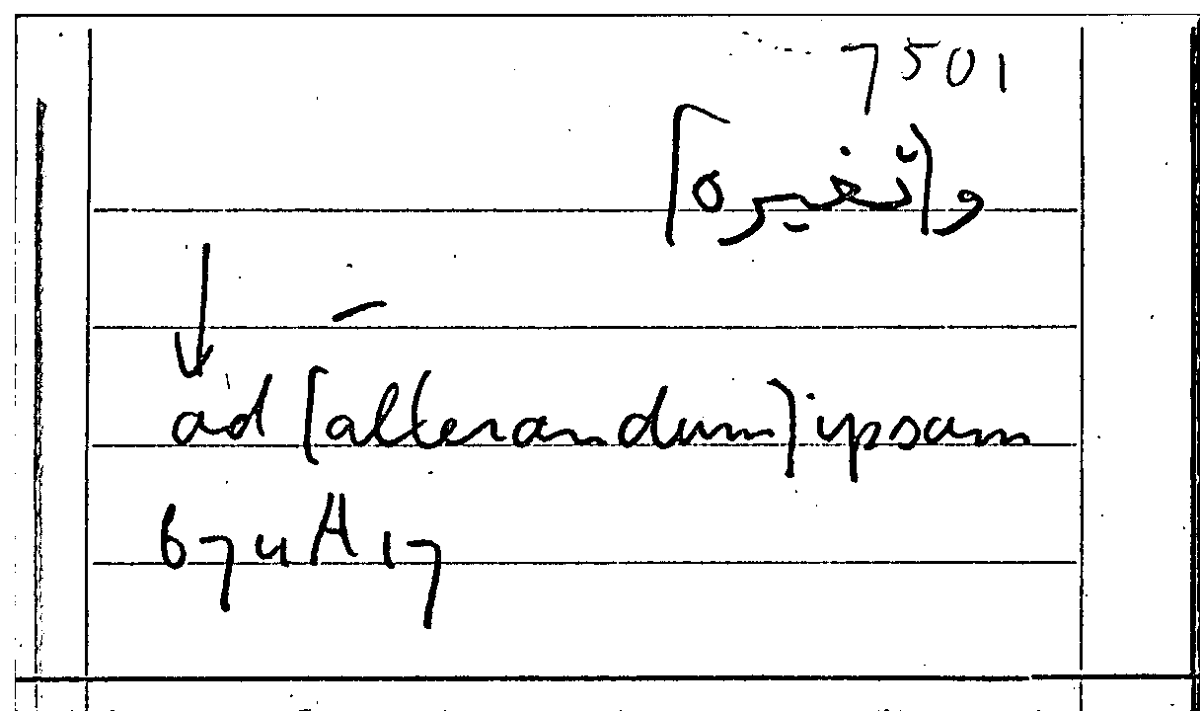 7501
و(تغيره]
ad [alterandum) ipsam
674A17